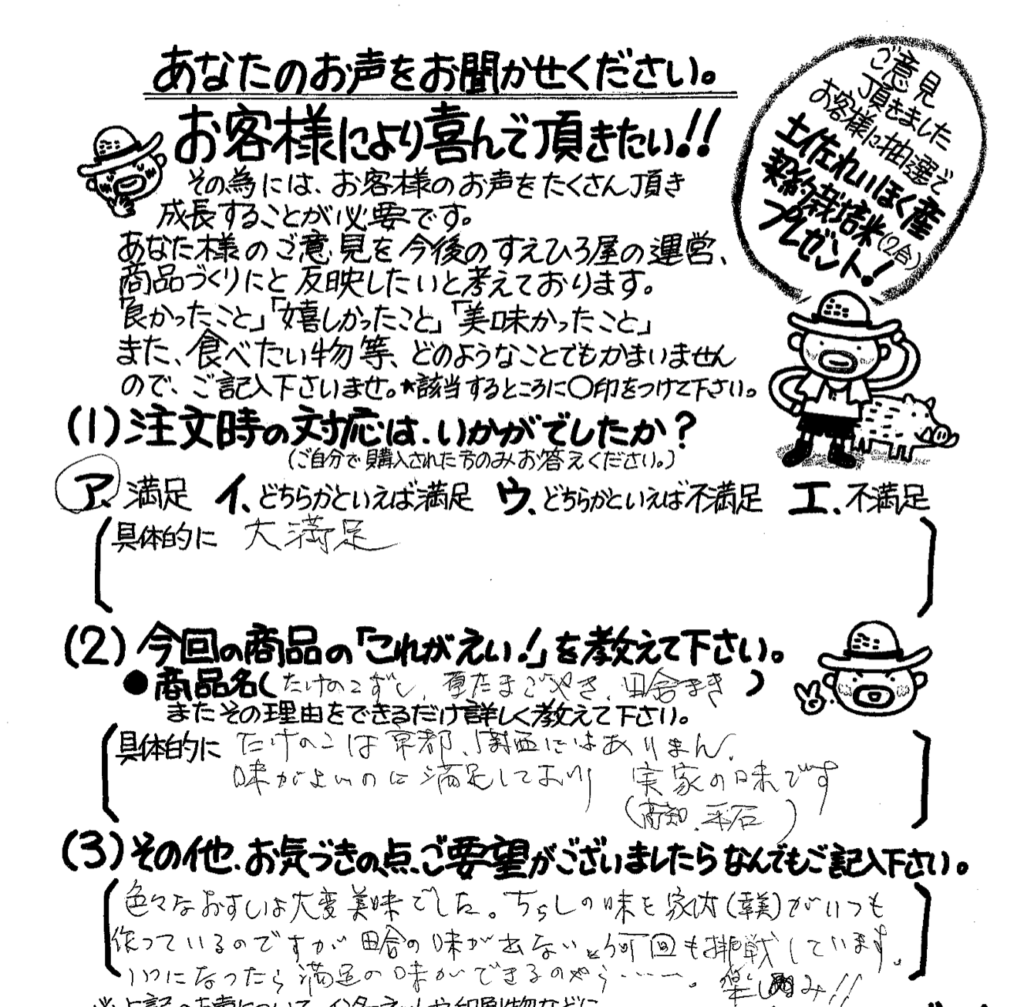 あなたのお声をお聞かせください。
お客様により喜んで頂きたい!!
ご意見
頂きました
お客様に抽選で
土佐れいほく産
契約栽培米(2合)
プレゼント!
その為には、お客様のお声をたくさん頂き
成長することが必要です。
あなた様のご意見を今後のすえひろ屋の運営、
商品づくりにと反映したいと考えております。
「良かったこと」「嬉しかったこと」「美味かったこと」
また、食べたい物等、どのようなことでもかまいません
ので、ご記入下さいませ。*該当するところに○印をつけて下さい。
(1)注文時の対応は、いかがでしたか?
(ご自分で購入された方のみお答えください。)
ア.満足 イ.どちらかといえば満足 ウ.どちらかといえば不満足 エ.不満足
具体的に 大満足
(2)今回の商品の「これがえい!」を教えて下さい。
●商品名(たけのこずし、厚たまごやき、田舎まき)
またその理由をできるだけ詳しく教えて下さい。
具体的に たけのこは京都、関西にはありません、
味がよいのに満足しており 実家の味です
(高知、)
(3)その他、お気づきの点、ご要望がございましたらなんでもご記入下さい。
色々なおすしは大変美味でした。ちらしの味を家内()がいつも
作っているのですが田舎の味が出ないと何回も挑戦しています。
いつになったら満足の味ができるのやら……。楽しみ!!